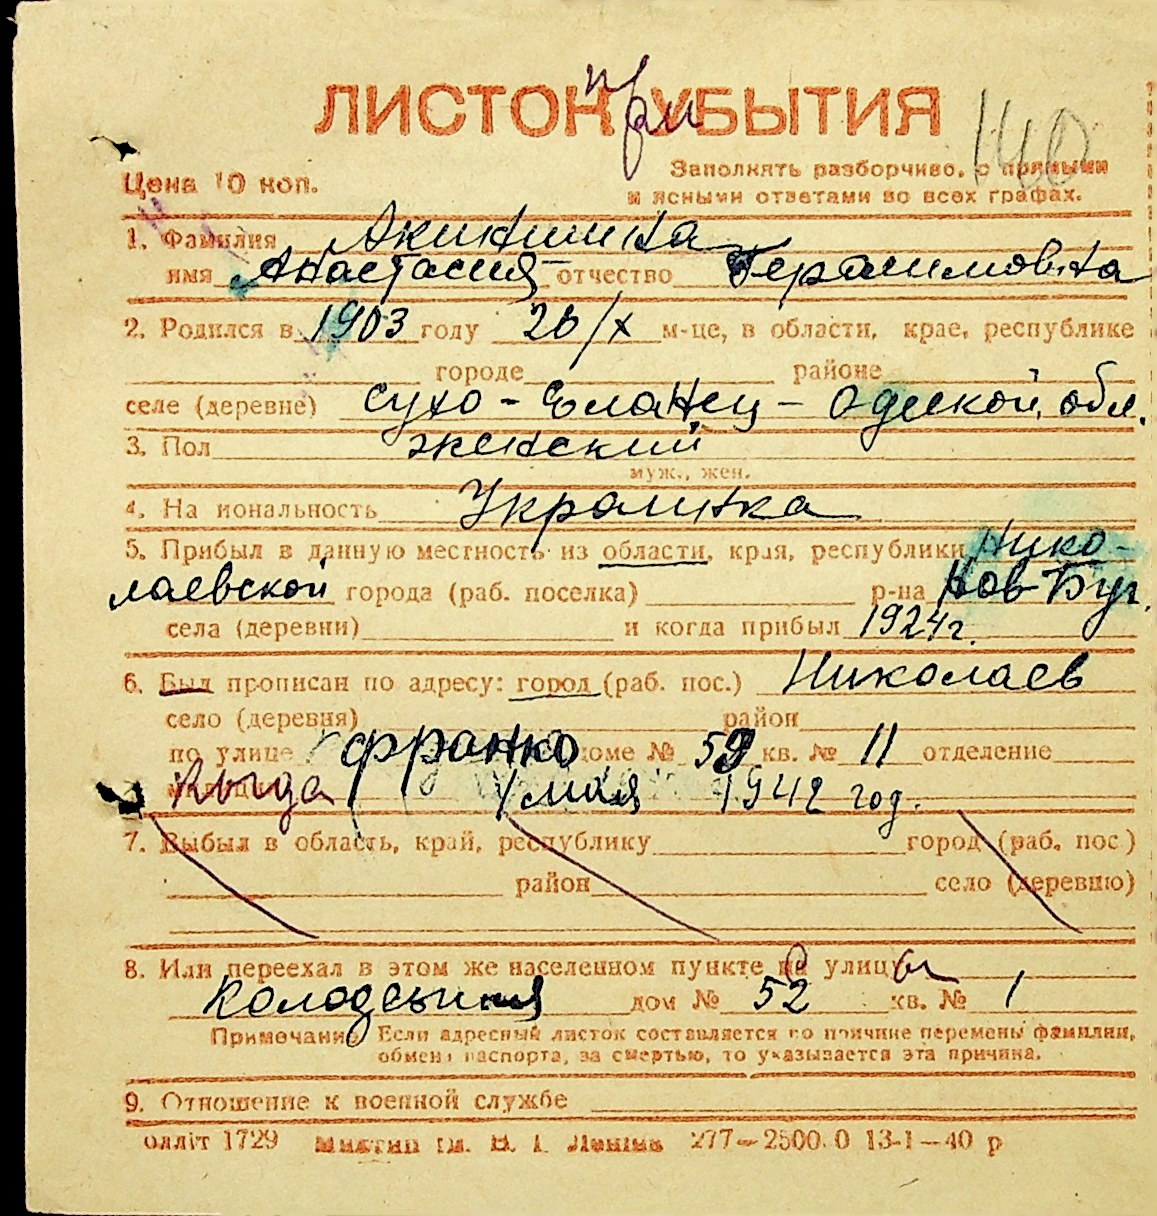 ЛИСТОК УБЫТИЯ
при
140
Цена 10 коп.
Заполнять разборчиво, с прямыми
и ясными ответами во всех графах.
1. Фамилия Акиншина
имя Анастасия отчество Герасимовна
2. Родился в 1903 году 26/X м-це, в области, крае, республике
городе районе
селе (деревне) Сухо-Еланец - Одеской обл.
3. Пол женский
муж., жен.
4. На иональность Украинка
5. Прибыл в данную местность из области, края, республики Нико-
лаевской города (раб. поселка) р-на Нов-Буг.
села (деревни) и когда прибыл 1924 г.
6. Был прописан по адресу: город (раб. пос.) Николаев
село (деревня) район
по улице Франко доме № 59 кв. № 11 отделение
Кында 1 мая 1942 год.
7. Выбыл в область, край, республику город (раб. пос)
район село (деревню)
8. Или переехал в этом же населенном пункте с улицы
Колодезьная дом № 52 кв. № 1
Примечание Если адресный листок составляется по причине перемены фамилии,
обмена паспорта, за смертью, то указывается эта причина.
9. Отношение к военной службе
олліт 1729 277—2500.0 13-1—40 р